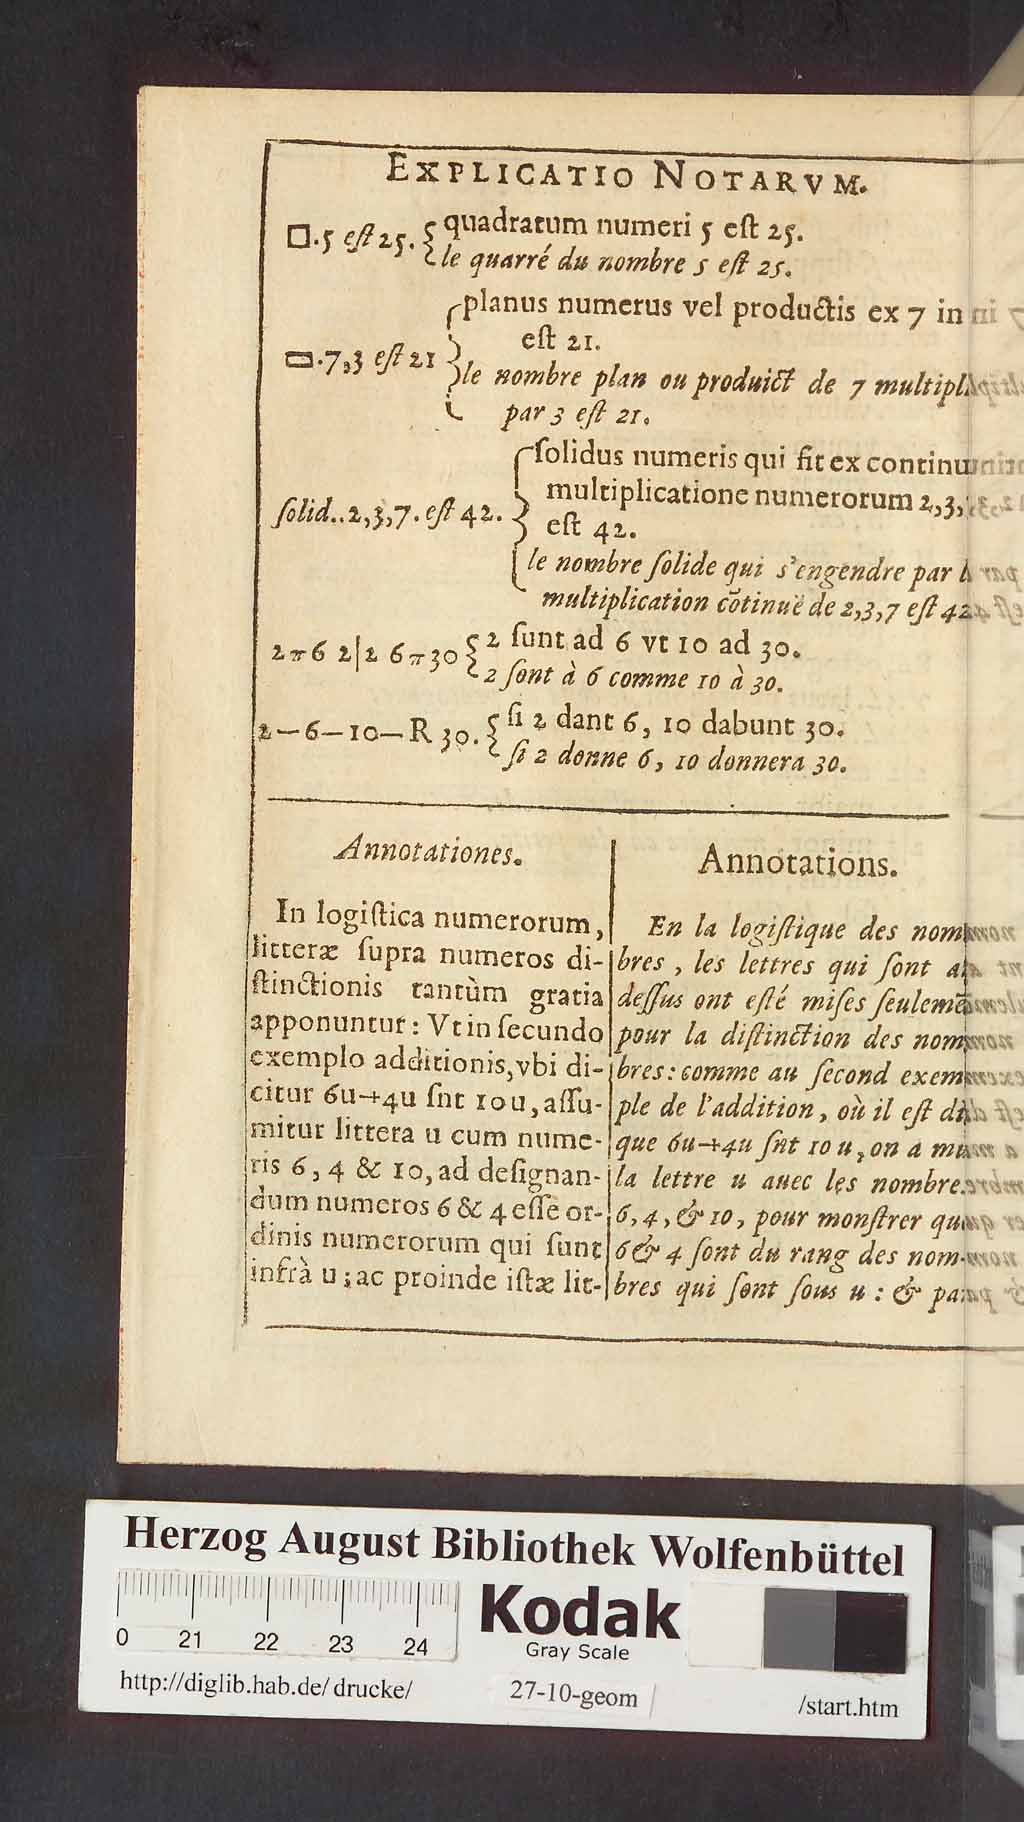 EXPLICATIO NOTARVM.
□.5 eſt 25. { quadratum numeri 5 eſt 25.
le quarré du nombre 5 eſt 25.
planus numerus vel productis ex 7 in
eſt 21.
▭.7,3 eſt 21
le nombre plan ou produict de 7 multipl
par 3 eſt 21.
ſolidus numeris qui fit ex continu
multiplicatione numerorum 2,3,
ſolid..2,3,7. eſt 42. } eſt 42.
le nombre ſolide qui s'engendre par l
multiplication cõtinuë de 2,3,7 eſt 42
2π6 2|2 6π30 { 2 ſunt ad 6 vt 10 ad 30.
2 ſont à 6 comme 10 à 30.
2—6—10—R 30. { ſi 2 dant 6, 10 dabunt 30.
ſi 2 donne 6, 10 donnera 30.
Annotationes.
In logiſtica numerorum,
litteræ ſupra numeros di-
ſtinctionis tantùm gratia
apponuntur: Vt in ſecundo
exemplo additionis, vbi di-
citur 6u+4u ſnt 10u, aſſu-
mitur littera u cum nume-
ris 6, 4 & 10, ad deſignan-
dum numeros 6 & 4 eſſe or-
dinis numerorum qui ſunt
infrà u; ac proinde iſtæ lit-
Annotations.
En la logiſtique des nom
bres, les lettres qui ſont a
deſſus ont eſté miſes ſeulemẽ
pour la diſtinction des nom
bres: comme au ſecond exem
ple de l'addition, où il eſt di
que 6u+4u ſnt 10 u, on a mi
la lettre u auec les nombre
6, 4, & 10, pour monſtrer qu
6 & 4 ſont du rang des nom-
bres qui ſont ſous u: & pa
Herzog August Bibliothek Wolfenbüttel
0 21 22 23 24
Kodak
Gray Scale
http://diglib.hab.de/drucke/ 27-10-geom /start.htm